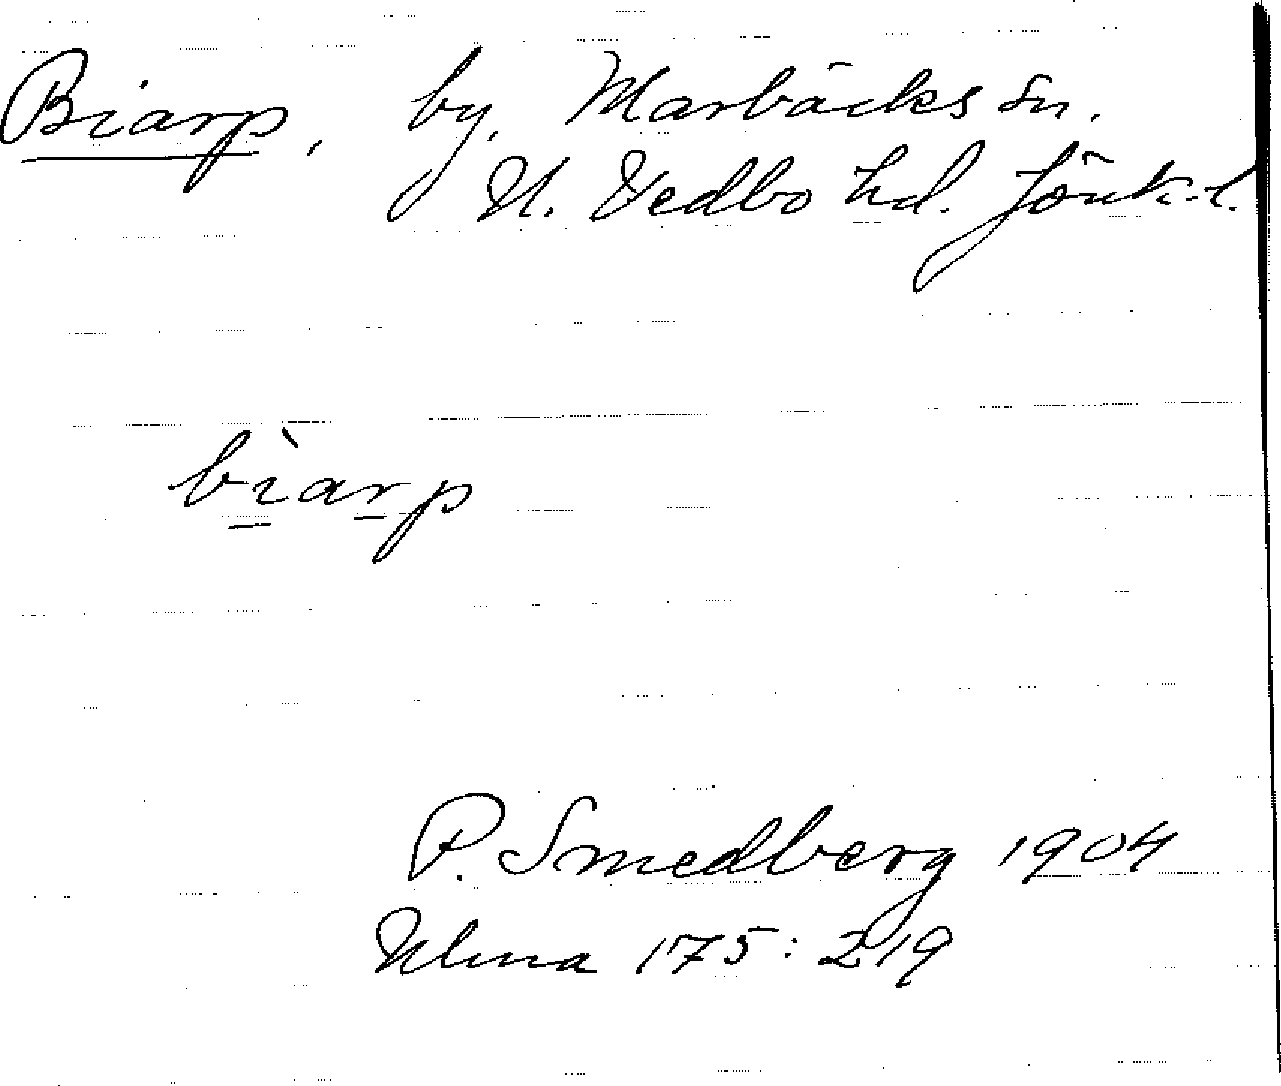 Biarp, by, Marbäcks sn.
N. Vedbo hd. Jönk. l.
bìarp
P. Smedberg 1904
Ulma 175:219